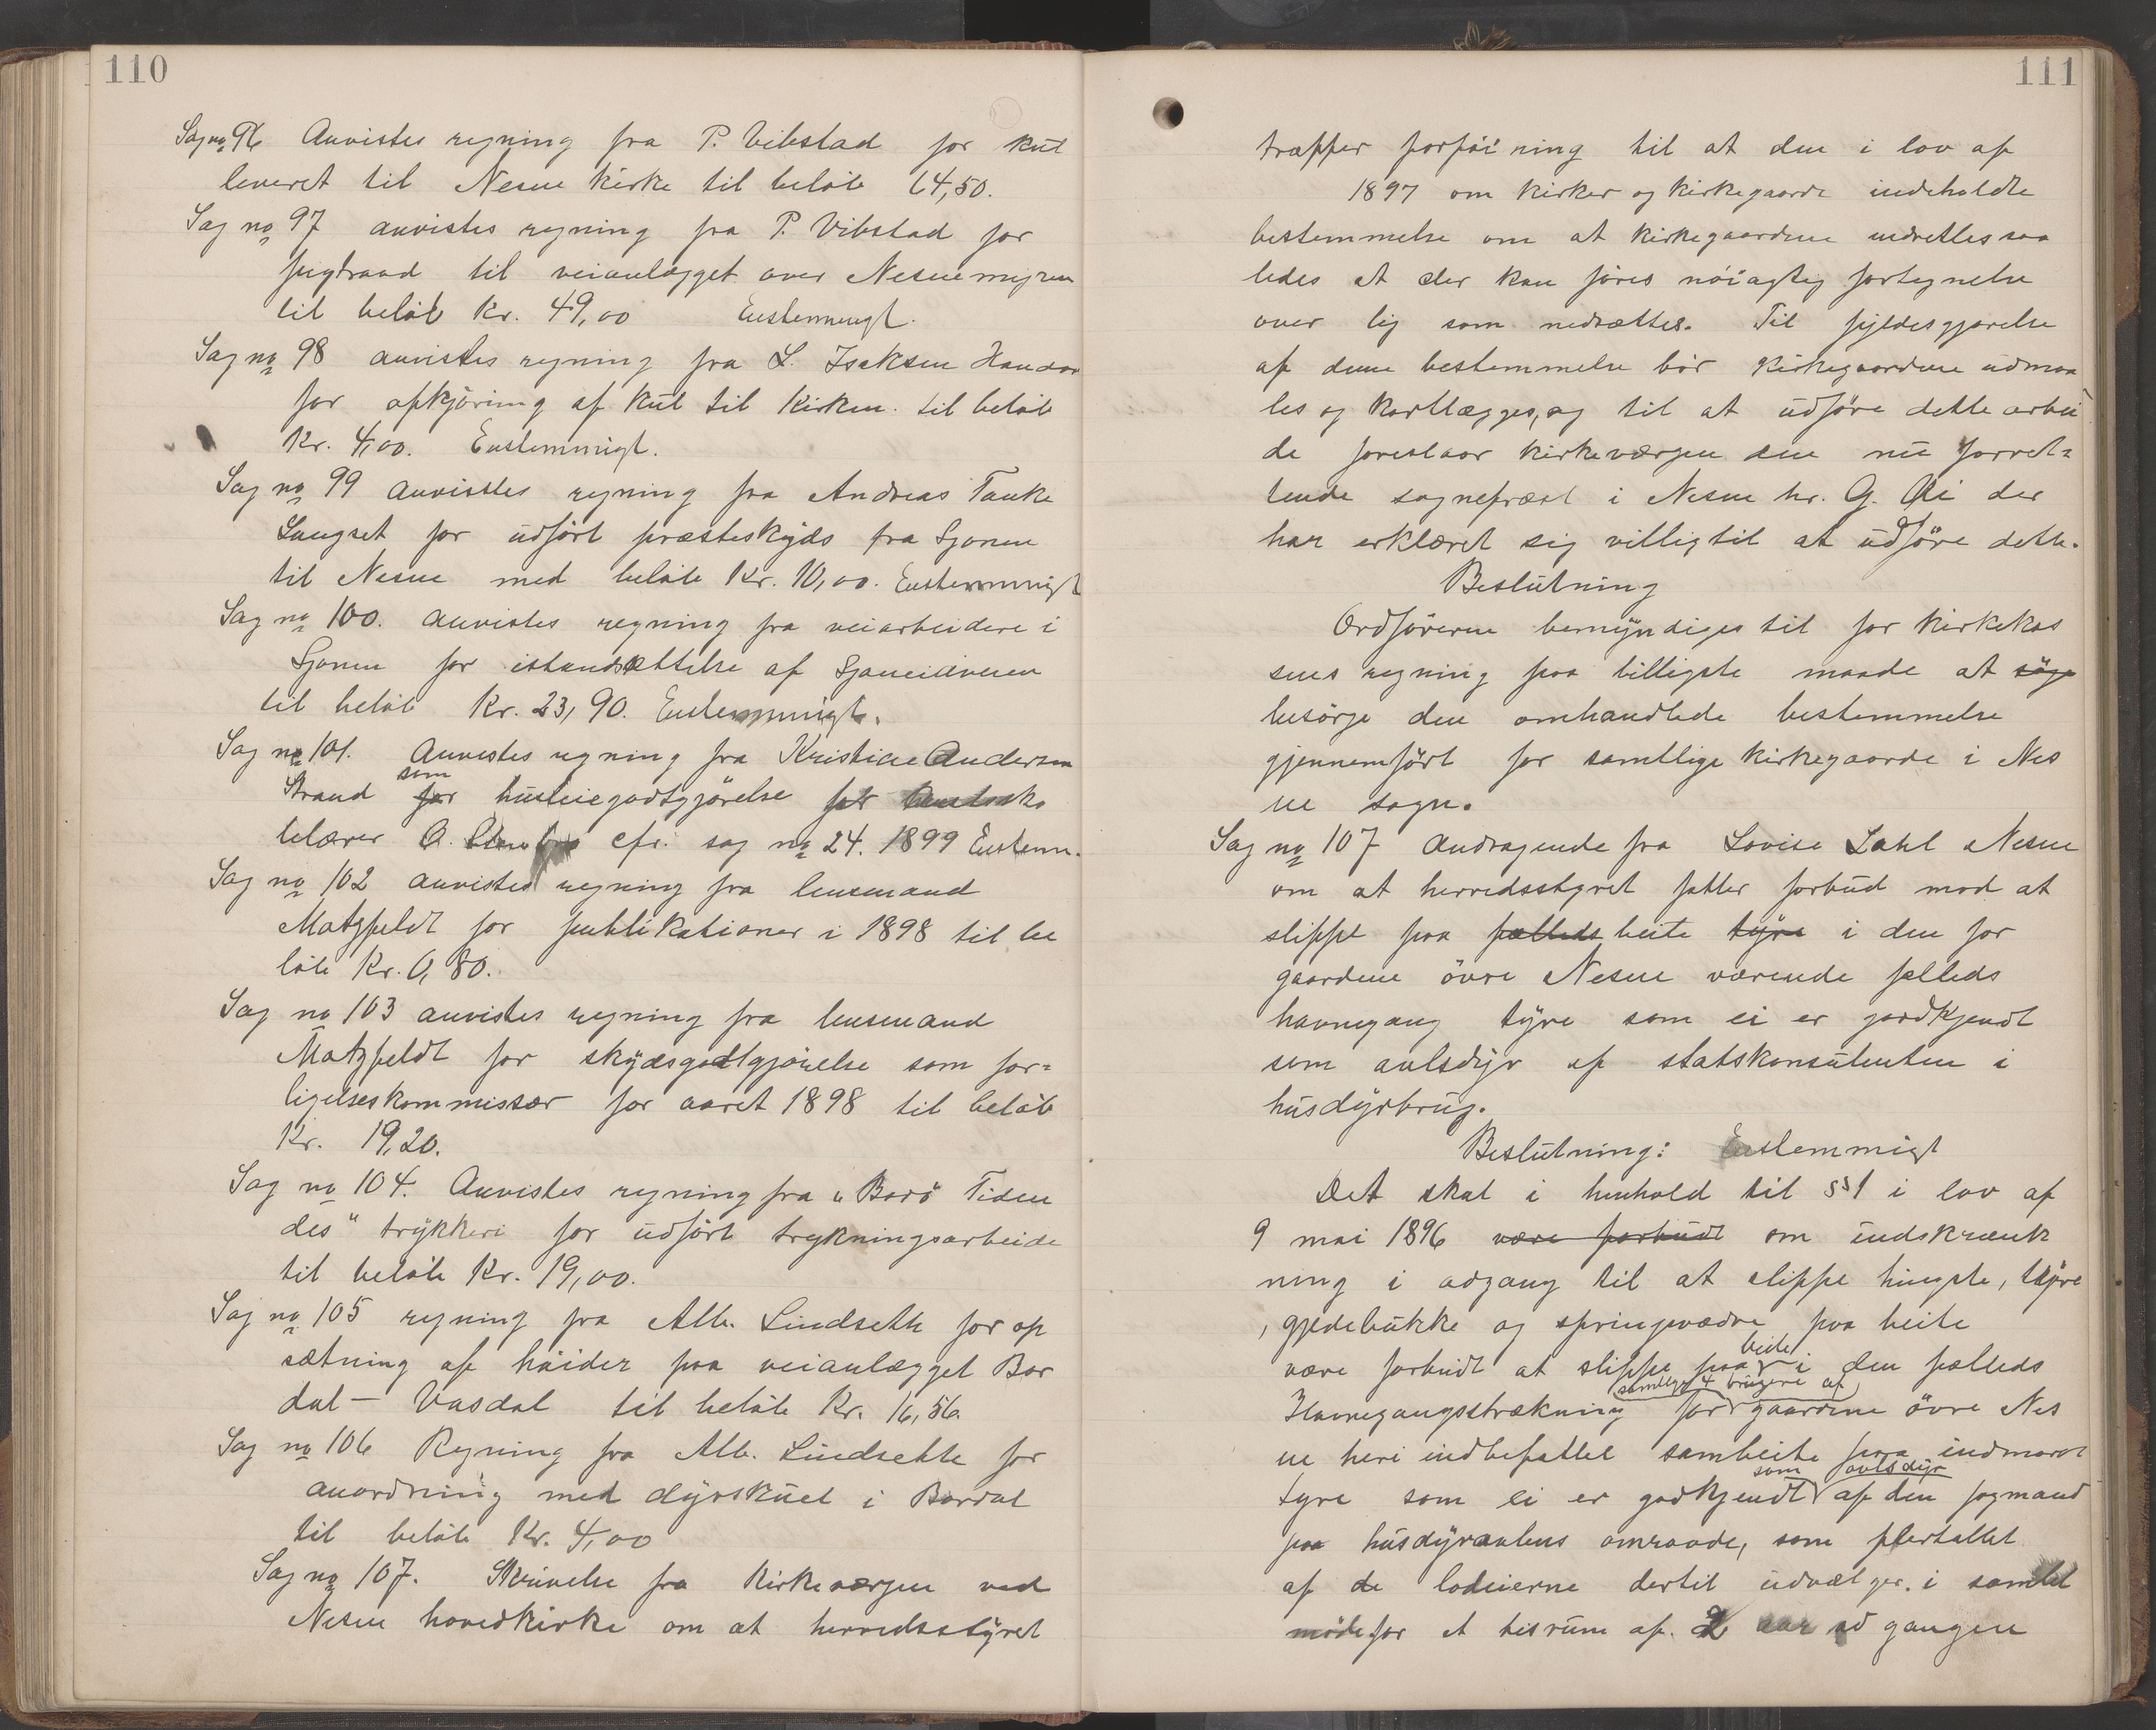 110
Sag no 96 Anvistes regning fra P. Vibstad for kul
leveret til Nesne kirke til beløb 64,50.
Sag no 97 anvistes regning fra P. Vibstad for
pigtraad til veianlægget over Nesnemyren
til beløb kr. 49,00 Enstemmigt.
Sag no 98 anvistes regning fra L. Isaksen Handa
for opkjøring af kul til kirken. til beløb
Kr. 4,00. Enstemmigt.
Sag no 99 anvistes regning fra Andreas Tanke
Langset for udført præsteskyds fra Sjonen
til Nesne med beløb Kr. 10,00. Enstemmigt
Sag no 100. anvistes regning fra veiarbeidere i
Sjonen for istandsættelse af Sjoneidveien
til beløb Kr. 23,90. Enstemmigt.
Sag no 101. Anvistes regning fra Kristine Andersen
Strand for som husleiegodtgjørelse for
lærer O. cfr. sag no 24. 1899 Enstem.
Sag no 102 anvistes regning fra lensmand
Motzfeldt for publikationer i 1898 til be
løb Kr. 0,80.
Sag no 103 anvistes regning fra lensmand
Motzfeldt for skydsgodtgjørelse som for-
ligelseskommissær for aaret 1898 til beløb
Kr. 19,20.
Sag no 104. Anvistes regning fra "Bodø Tiden
des" trykkeri for udført trykningsarbeide
til beløb Kr. 19,00.
Sag no 105 regning fra Alb. Lindseth for op
sætning af høider paa veianlægget Bar
dal – Vasdal til beløb Kr. 16,56.
Sag no 106 Regning fra Alb. Lindseth for
anordning med dyrskuet i Bardal
til beløb Kr. 4,00
Sag no 107. Skrivelse fra kirkeværgen ved
Nesne hovedkirke om at herredsstyret
111
træffer forføining til at den i lov af
1897 om kirker og kirkegaarde indeholdte
bestemmelse om at kirkegaardene indrettes saa
ledes at der kan føres nøiagtig fortegnelse
over lig som nedsættes. Til fyldesgjørelse
af denne bestemmelse bør kirkegaardene udmaa
les og kartlægges, og til at udføre dette arbei
de foreslaar kirkeværgen den nu forret-
tende sognepræst i Nesne hr. G. Øi der
har erklæret sig villig til at udføre dette.
Beslutning
Ordføreren bemyndiges til for kirkekas
sens regning paa billigste maade at søge
besørge den omhandlede bestemmelse
gjennemført for samtlige kirkegaarde i Nes
ne sogn.
Sag no 107 Andragende fra Lovise Zahl Nesne
om at herredsstyret fatter forbud mod at
slippe paa fælleds beite tyre i den for
gaardene øvre Nesne værende fælleds
havnegang tyre som ei er godkjendt
som avlsdyr af statskonsulenten i
husdyrbrug.
Beslutning: Enstemmigt
Det skal i henhold til §1 i lov af
9 mai 1896 være forbudt om indskrænk
ning i adgang til at slippe hingste, tyre
, gjedebukke og springvædre paa beite
være forbudt at slippe paa beite i den fælleds
Havnegangsstrækning for samtlige 4 brugere af gaardene øvre Nes
ne heri indbefattet sambeite paa indmark
tyre som ei er godkjendt som avlsdyr af den fagmand
paa husdyravlens omraade, som flertallet
af de lodeierne dertil udvælger i samlet
møde for et tisrum af 2 aar ad gangen